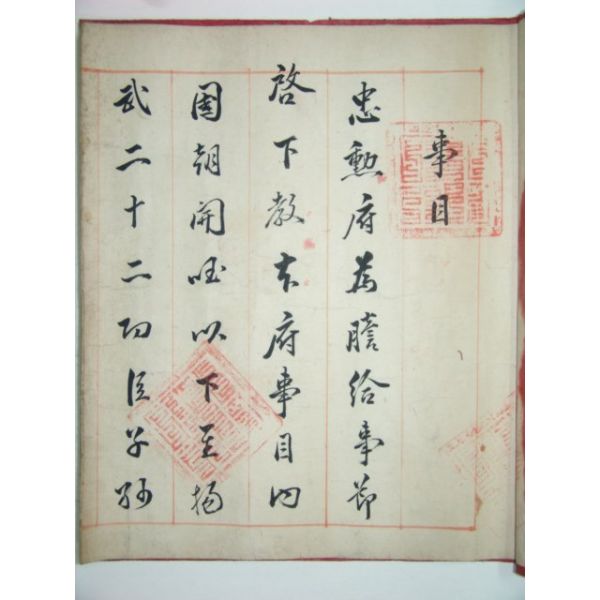 事目
忠勳府為謄給事節
啓下教本府事目內
國朝開國以下至揚
武二十二功臣子孫